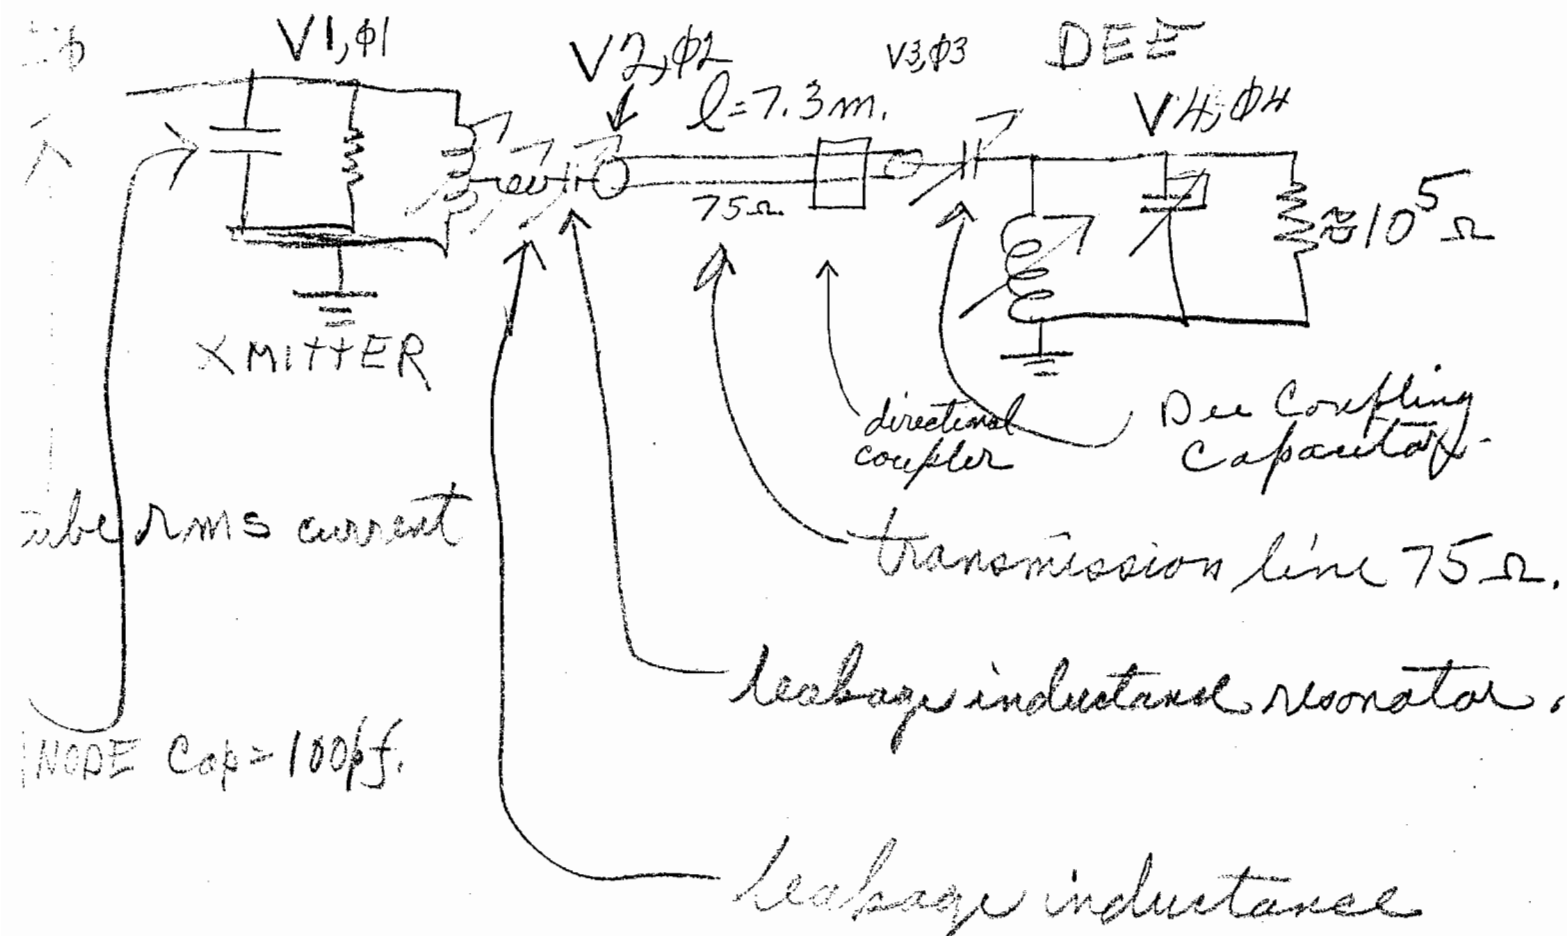 V1,ϕ1
V2,ϕ2
V3,ϕ3
DEE
l=7.3m.
V4,ϕ4
75Ω
≈10⁵Ω
XMITTER
directional
coupler
Dee Coupling
Capacitor.
rms current
transmission line 75Ω.
leakage inductance resonator.
NODE Cap=100pf.
leakage inductance